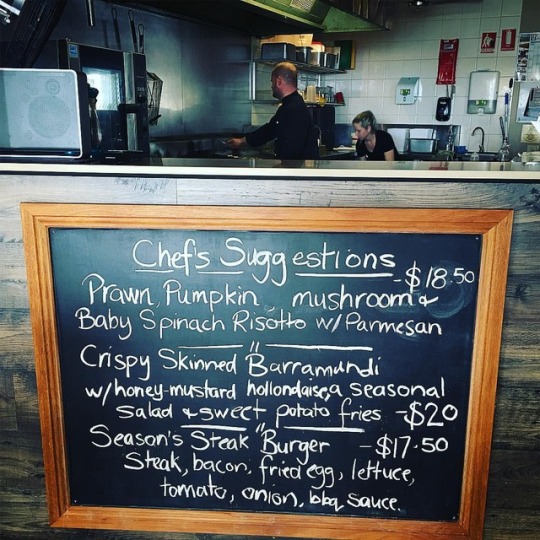 Chef's Suggestions
-$18.50
Prawn, Pumpkin, mushroom &
Baby Spinach Risotto w/Parmesan
"
Crispy Skinned Barramundi
w/honey-mustard hollondaise, a seasonal
salad & sweet potato fries -$20
"
Season's Steak Burger -$17.50
Steak, bacon, fried egg, lettuce,
tomato, onion, bbq sauce.